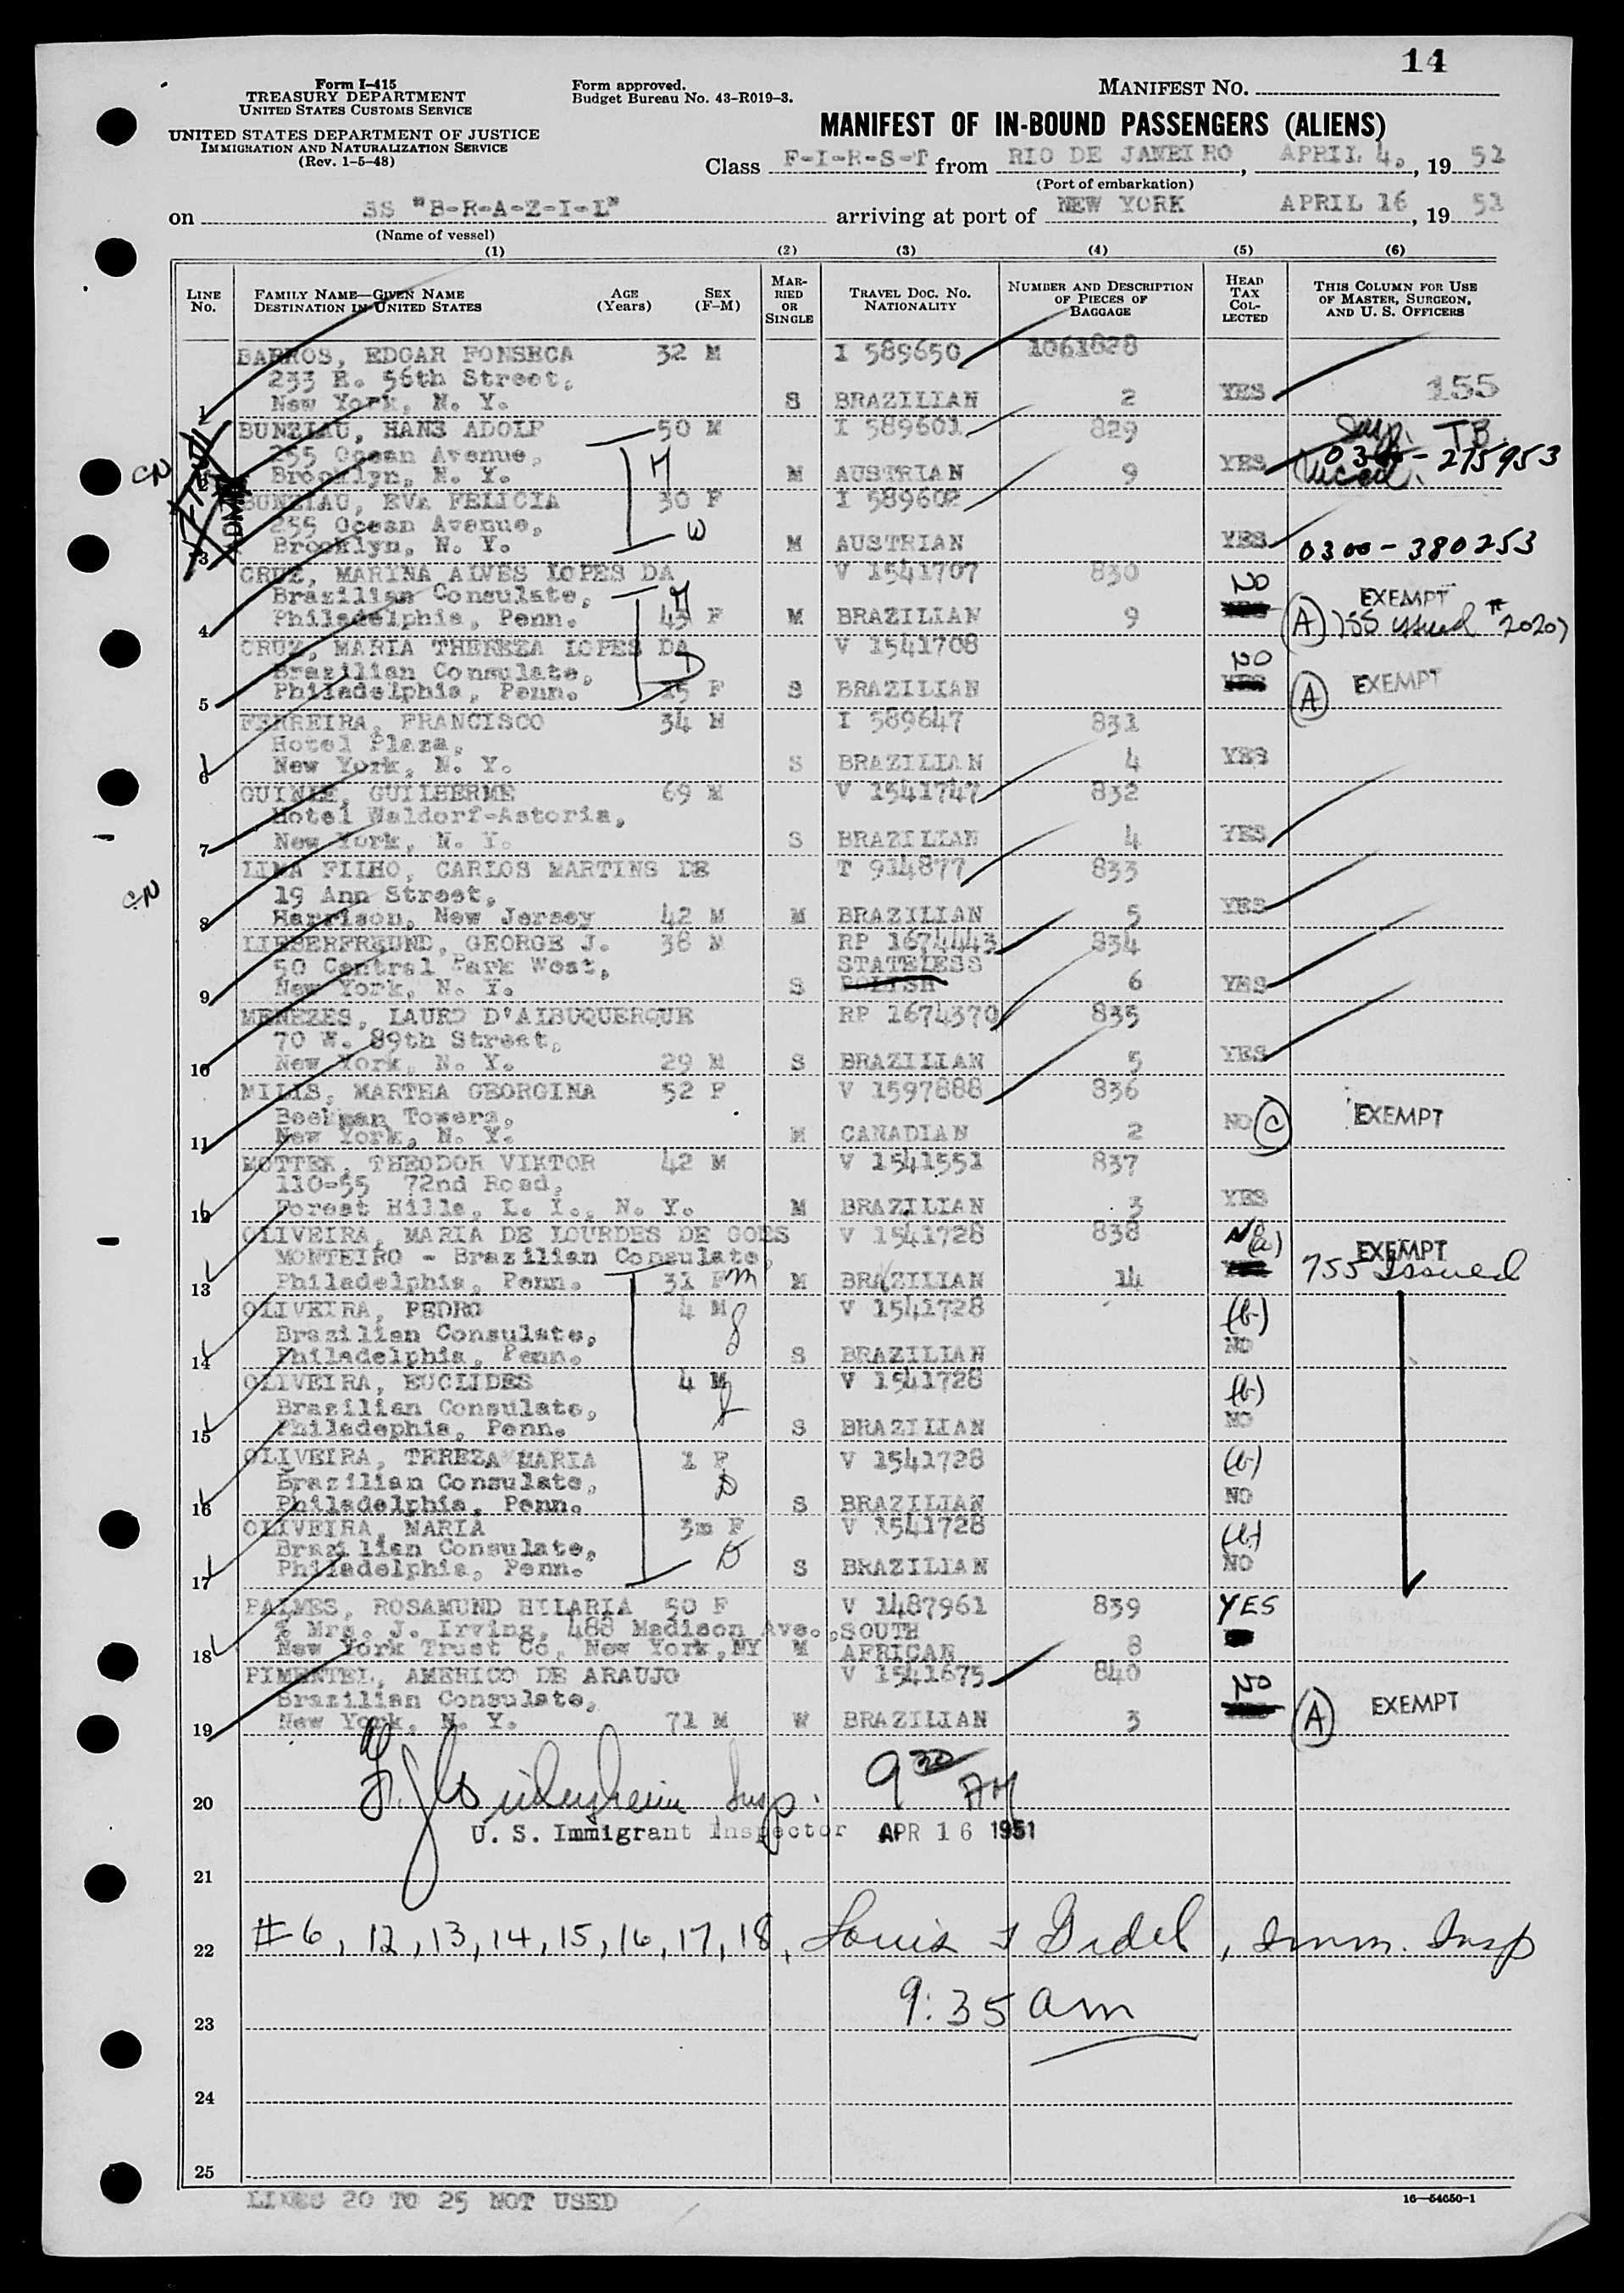 14
Form I-415
TREASURY DEPARTMENT
UNITED STATES CUSTOMS SERVICE
UNITED STATES DEPARTMENT OF JUSTICE
IMMIGRATION AND NATURALIZATION SERVICE
(Rev. 1-5-48)
Form approved.
Budget Bureau No. 43-R019-3.
MANIFEST NO.
MANIFEST OF IN-BOUND PASSENGERS (ALIENS)
Class F-I-R-S-T from RIO DE JANEIRO, APRIL 4, 1951
(Port of embarkation)
on SS "B-R-A-Z-I-L" arriving at port of NEW YORK APRIL 16, 1951
(Name of vessel)
(1) (2) (3) (4) (5) (6)
LINE NO. FAMILY NAME—GIVEN NAME DESTINATION IN UNITED STATES AGE (Years) SEX (F-M) MARRIED OR SINGLE TRAVEL DOC. NO. NATIONALITY NUMBER AND DESCRIPTION OF PIECES OF BAGGAGE HEAD TAX COLLECTED THIS COLUMN FOR USE OF MASTER, SURGEON, AND U. S. OFFICERS
BARROS, EDGAR FONSECA 32 M I 589650 1061828
233 E. 56th Street,
1 New York, N. Y. S BRAZILIAN 2 YES 155
BUNZLAU, HANS ADOLF 50 M I 589601 829
255 Ocean Avenue, H
Brooklyn, N. Y. M AUSTRIAN 9 YES T.B. 275953
BUNZLAU, EVA FELICIA 30 F I 589602
255 Ocean Avenue, W
3 Brooklyn, N. Y. M AUSTRIAN YES 0300-380253
CRUZ, MARINA ALVES LOPES DA V 1541707 830 NO
Brazilian Consulate, M EXEMPT
4 Philadelphia, Penn. 45 F M BRAZILIAN 9 YES (A) 755 issued # 20207
CRUZ, MARIA THEREZA LOPES DA V 1541708 NO
Brazilian Consulate, D
5 Philadelphia, Penn. 15 F S BRAZILIAN YES (A) EXEMPT
FERREIRA, FRANCISCO 34 M I 589647 831
Hotel Plaza,
6 New York, N. Y. S BRAZILIAN 4 YES
GUINLE, GUILHERME 69 M V 1541747 832
Hotel Waldorf-Astoria,
7 New York, N. Y. S BRAZILIAN 4 YES
LIMA FILHO, CARLOS MARTINS DE T 914877 833
19 Ann Street,
8 Harrison, New Jersey 42 M M BRAZILIAN 5 YES
LIEBERFREUND, GEORGE J. 38 M RP 1674443 834
50 Central Park West, STATELESS
9 New York, N. Y. S POLISH 6 YES
MENEZES, LAURO D'ALBUQUERQUR RP 1674370 835
70 W. 89th Street,
10 New York, N. Y. 29 M S BRAZILIAN 5 YES
MILLS, MARTHA GEORGINA 52 F V 1597888 836
Beekman Towers,
11 New York, N. Y. M CANADIAN 2 NO (C) EXEMPT
MOTTEK, THEODOR VIKTOR 42 M V 1541551 837
110-55 72nd Road,
12 Forest Hills, L. I., N. Y. M BRAZILIAN 3 YES
OLIVEIRA, MARIA DE LOURDES DE GOES V 1541728 838 No (a)
MONTEIRO - Brazilian Consulate, EXEMPT
13 Philadelphia, Penn. 31 F m M BRAZILIAN 14 YES 755 Issued
OLIVEIRA, PEDRO 4 M V 1541728 (b)
Brazilian Consulate, S
14 Philadelphia, Penn. S BRAZILIAN NO
OLIVEIRA, EUCLIDES 4 M V 1541728 (b)
Brazilian Consulate, S
15 Philadephia, Penn. S BRAZILIAN NO
OLIVEIRA, TEREZA MARIA 1 F V 1541728 (b)
Brazilian Consulate, D
16 Philadelphia, Penn. S BRAZILIAN NO
OLIVEIRA, MARIA 3m F V 1541728 (b)
Brazilian Consulate, D
17 Philadelphia, Penn. S BRAZILIAN NO
PALMES, ROSAMUND HILARIA 50 F V 1487961 839 YES
% Mrs. J. Irving, 488 Madison Ave., SOUTH
18 New York Trust Co, New York, NY M AFRICAN 8
PIMENTEL, AMERICO DE ARAUJO V 1541675 840 NO
Brazilian Consulate,
19 New York, N. Y. 71 M W BRAZILIAN 3 (A) EXEMPT
20 Insp. 9 30 AM
U. S. Immigrant Inspector APR 16 1951
21
22 #6, 12, 13, 14, 15, 16, 17, 18, Louis Gidel, Imm. Insp
9:35 am
23
24
25
LINES 20 TO 25 NOT USED
16—54650-1